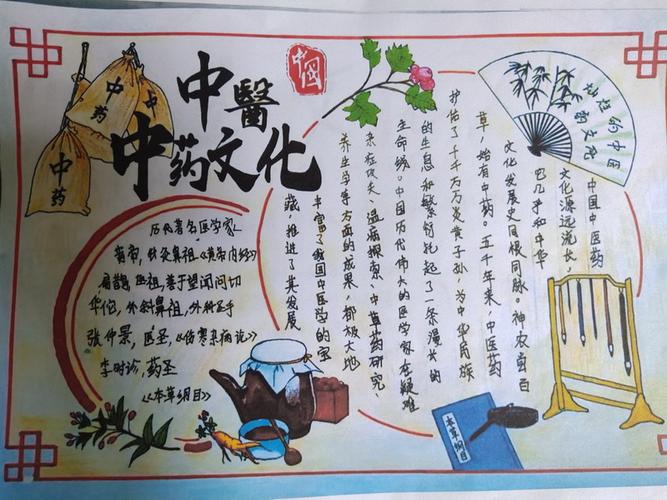 中醫
中药文化
中国
中药
中
中药
历代著名医学家
黄帝,针灸鼻祖《黄帝内经》
扁鹊,医祖,善于望闻问切
华佗,外科鼻祖,外科圣手
张仲景,医圣,《伤寒杂病论》
李时珍,药圣
《本草纲目》
中国中医药
文化源远流长,
它几乎和中华
文化发展史同根同脉。神农尝百
草,始有中药。五千年来,中医药
护佑了千千万万炎黄子孙,为中华民族
的生息和繁衍托起了一条漫长的
生命线。中国历代伟大的医学家在疑难
杂症攻关、温病探索、中草药研究、
养生学等方面的成果,都极大地
丰富了我国中医学的宝
藏,推进了其发展
本草纲目